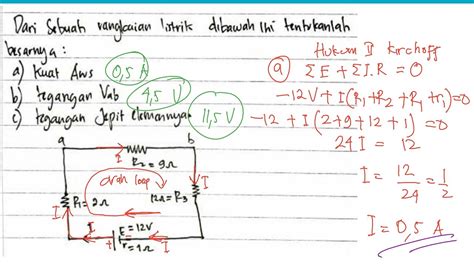 Dari Sebuah rangkaian listrik dibawah ini tentukanlah
besarnya :
a) Kuat Arus 0,5 A
b) tegangan Vab 4,5 V
c) tegangan Jepit elemennya 11,5 V
Hukum II Kirchoff
a) ΣE + ΣI.R = 0
-12V + I(R1+R2+R3+r1)=0
-12 + I(2+9+12+1)=0
24I = 12
I = 12/24 = 1/2
I = 0,5 A
a b
I
R2 = 9Ω
arah loop
I
I
R1 = 2Ω
12Ω = R3
I
E = 12V
r = 1Ω
I
I
+